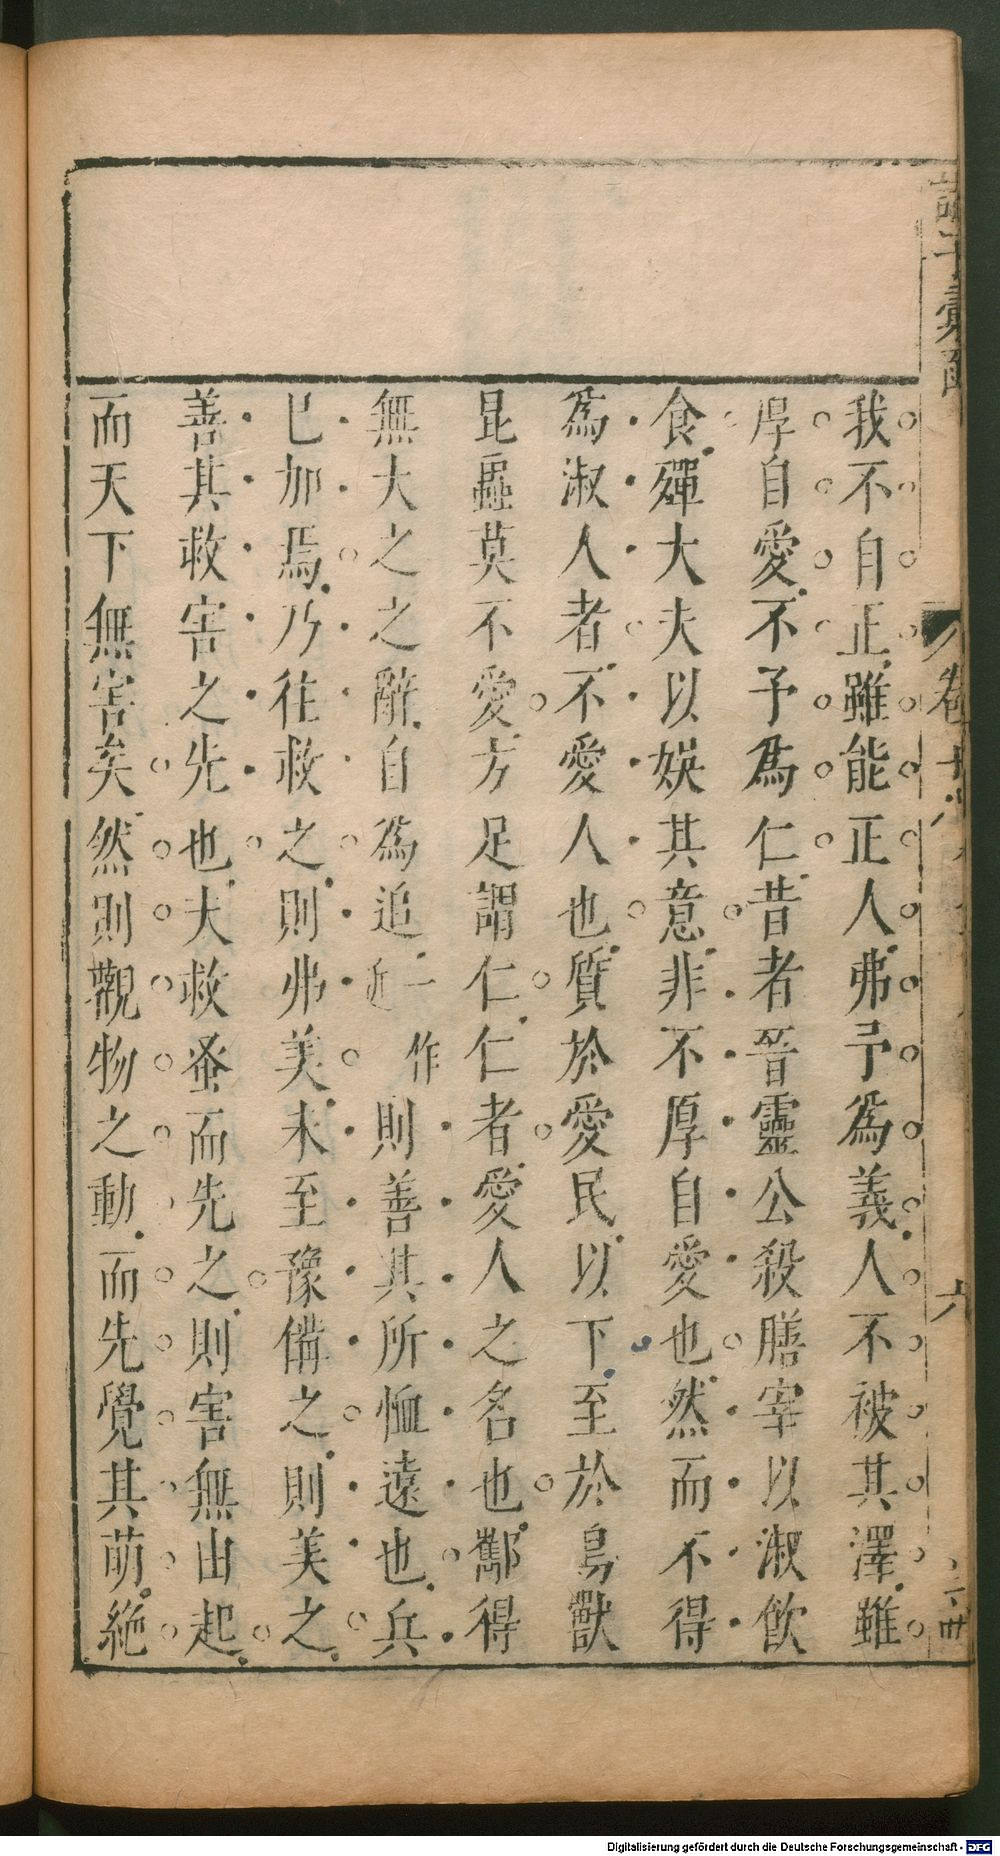 我不自正雖能正人弗予爲義人不被其澤雖
厚自愛不予爲仁昔者晉靈公殺膳宰以淑飲
食彈大夫以娛其意非不厚自愛也然而不得
爲淑人者不愛人也質於愛民以下至於鳥獸
昆蟲莫不愛不愛方足謂仁仁者愛人之名也酅得
無大之之辭自爲追一作近則善其所恤遠也兵
已加焉乃往救之則弗美未至豫備之則美之
善其救害之先也夫救蚤而先之則害無由起
而天下無害矣然則觀物之動而先覺其萌絶
卷
六
Digitalisierung gefördert durch die Deutsche Forschungsgemeinschaft - DFG